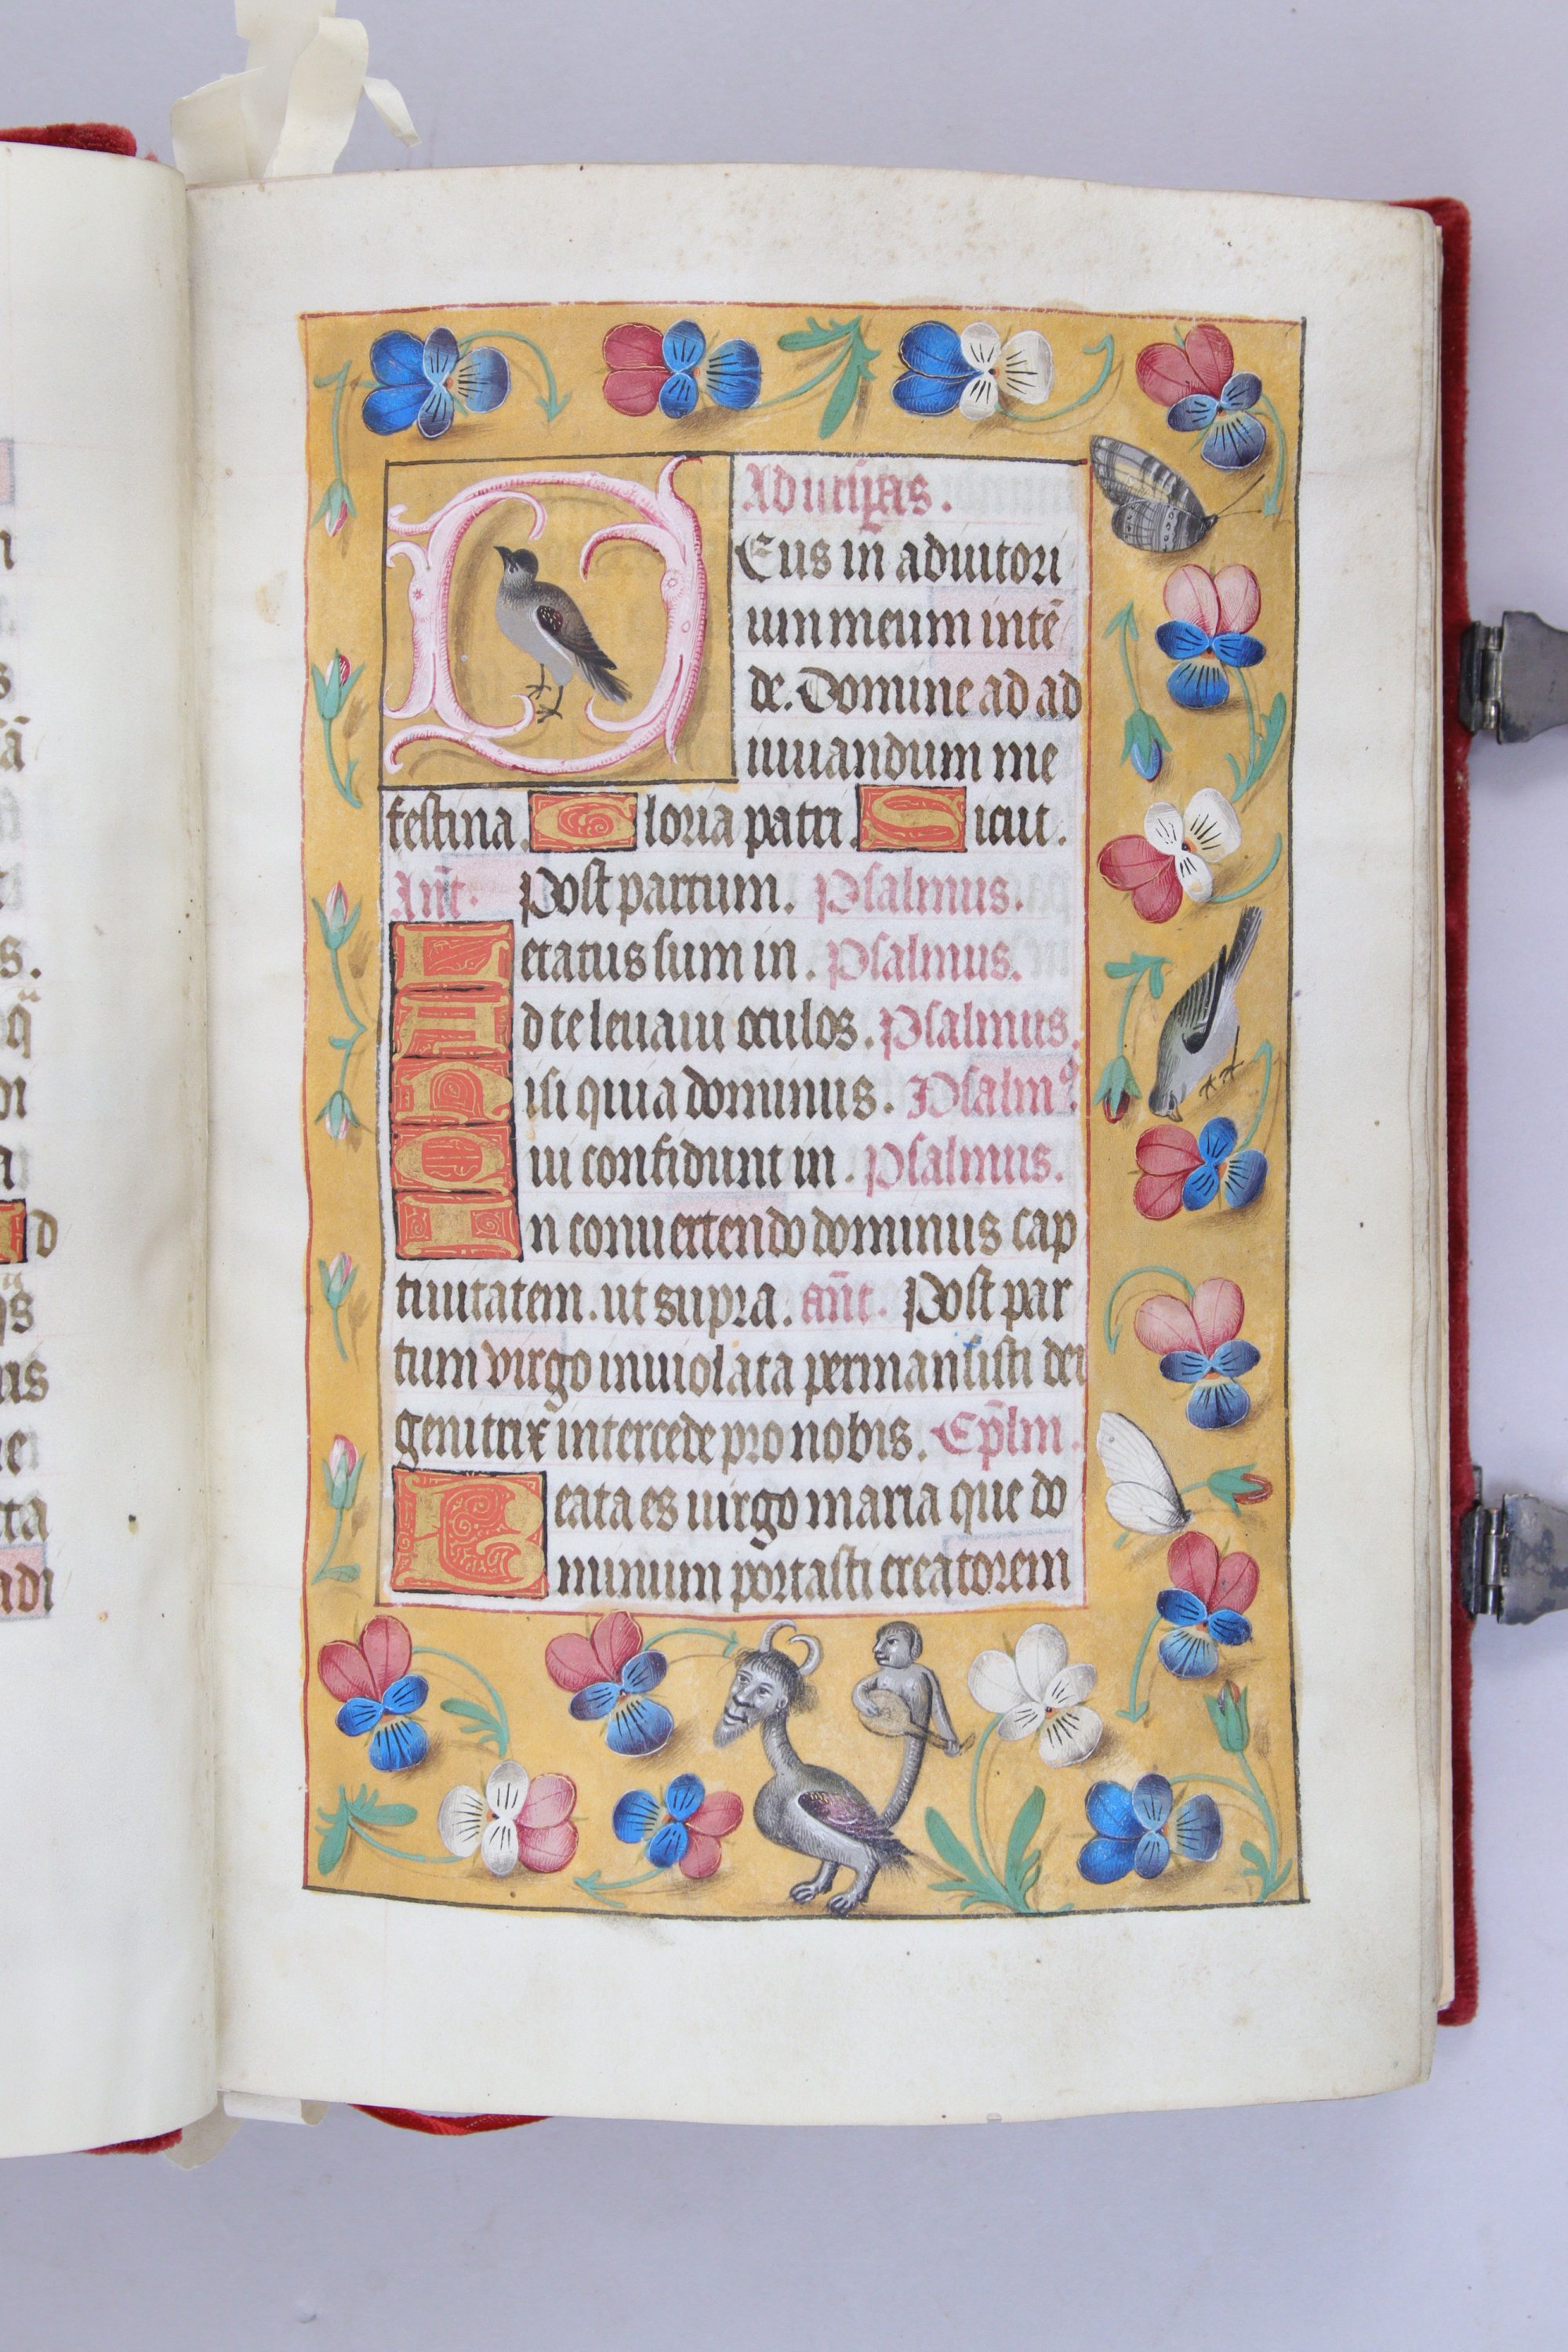 Ad uesp̄as.
DEus in adiutori
um meum intē
de. Domine ad ad
iuuandum me
festina. Gloria patri. Sicut.
Ant̄. Post partum. Psalmus.
Letatus sum in. Psalmus.
Ad te leuaui oculos. Psalmus.
Nisi quia dominus. Psalmꝰ.
Qui confidunt in. Psalmus.
In conuertendo dominus cap
tiuitatem. ut supra. ant̄. Post par
tum virgo inuiolata permansisti dei
genitrix intercede pro nobis. Cap̄lm.
Beata es uirgo maria que do
minum portasti creatorem